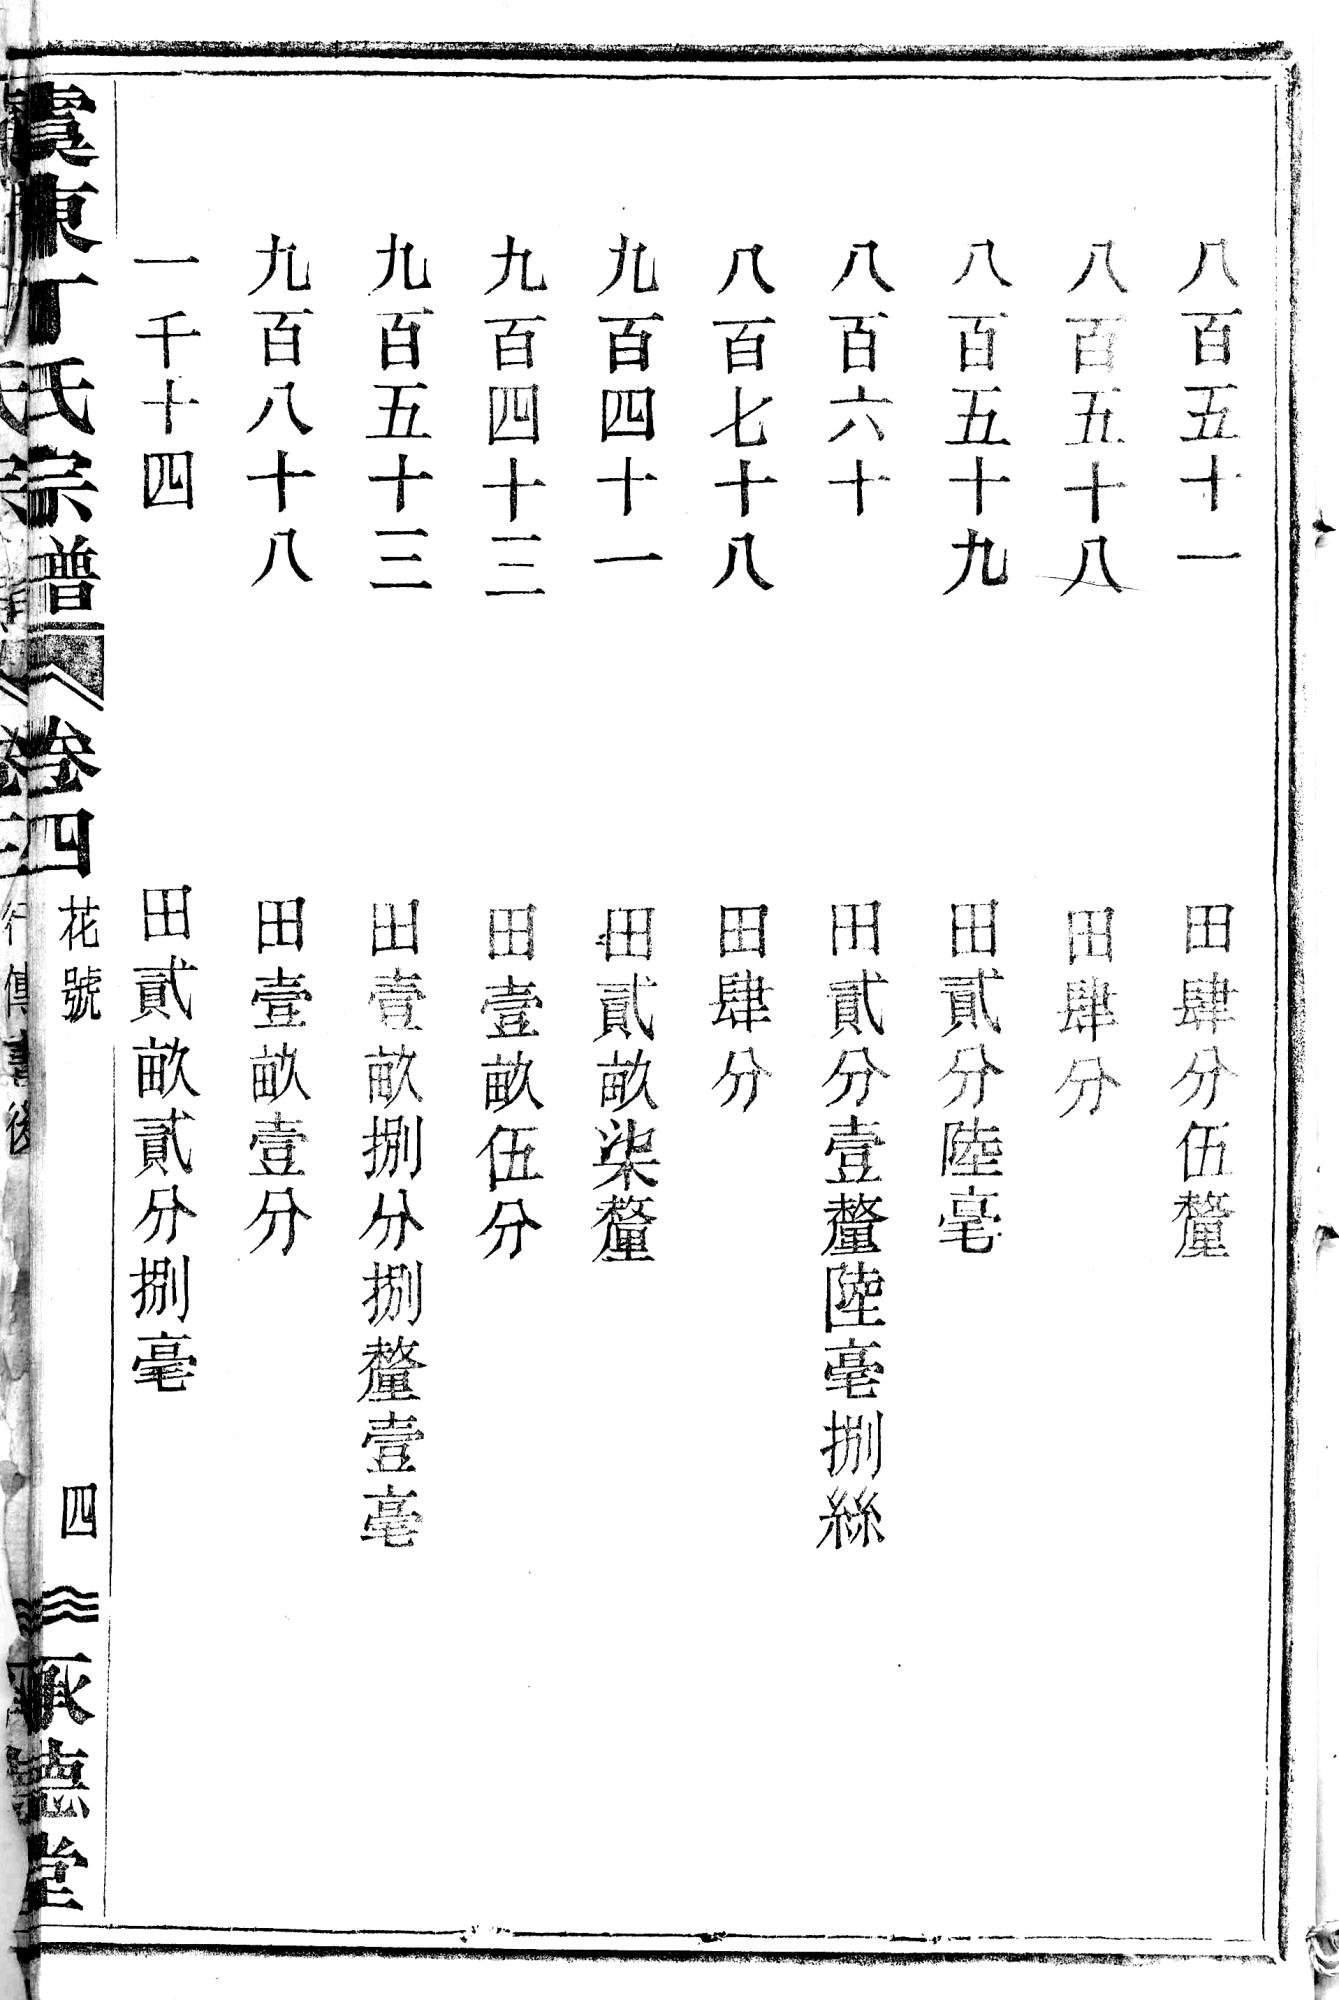 八百五十一　田肆分伍釐
八百五十八　田肆分
八百五十九　田貳分陸毫
八百六十　田貳分壹釐陸毫捌絲
八百七十八　田肆分
九百四十一　田貳畝柒釐
九百四十三　田壹畝伍分
九百五十三　田壹畝捌分捌釐壹毫
九百八十八　田壹畝壹分
一千十四　田貳畝貳分捌毫
虞東丁氏宗譜　卷四　花號　四　承德堂